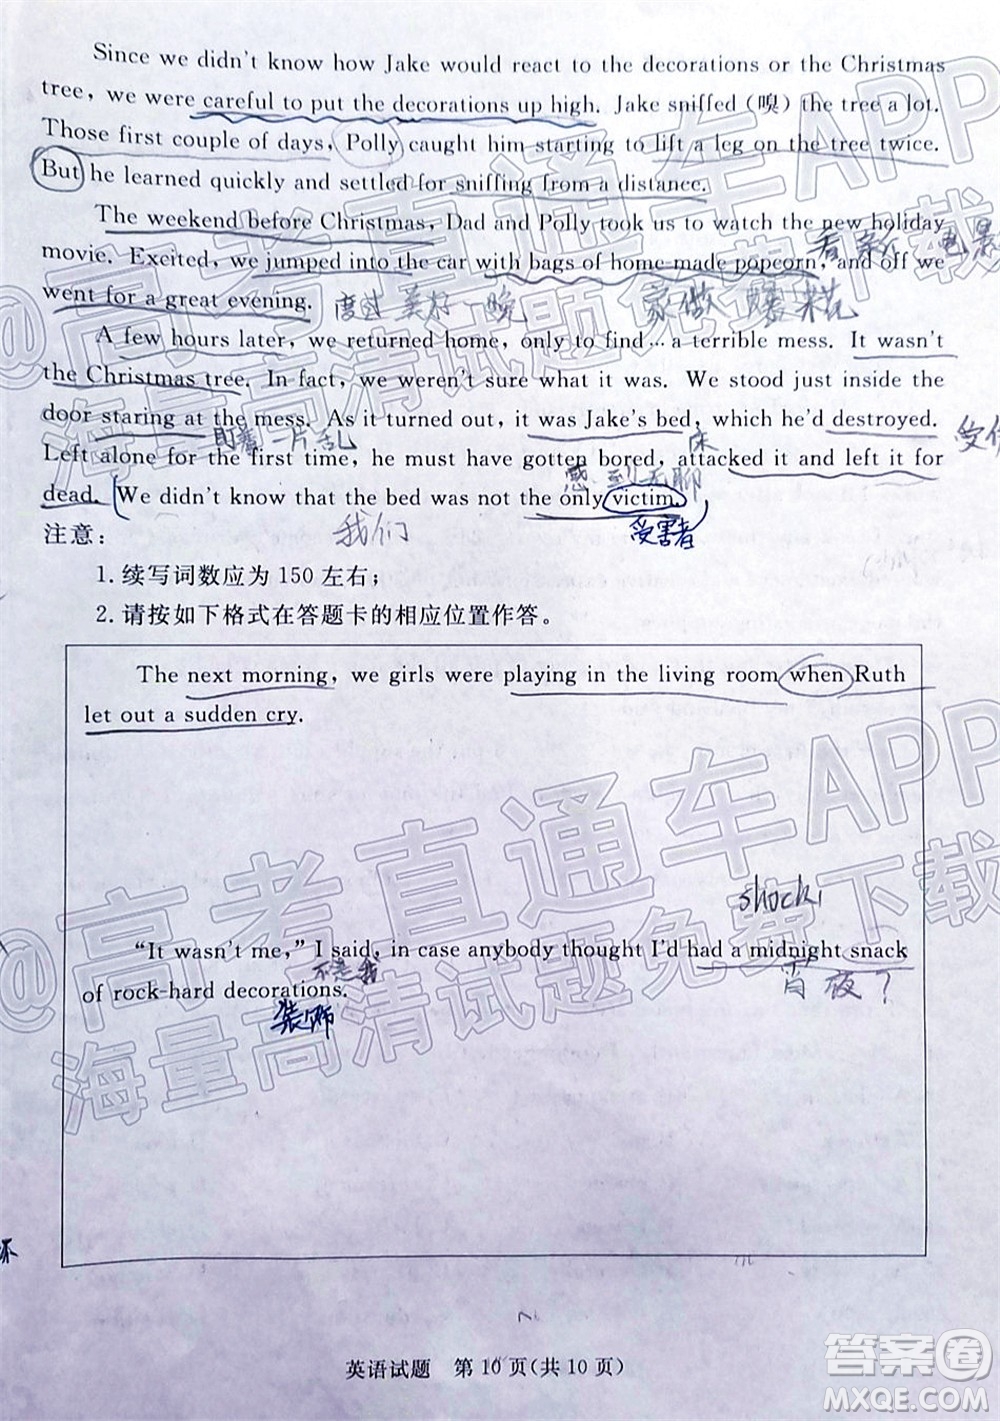 Since we didn't know how Jake would react to the decorations or the Christmas
tree, we were careful to put the decorations up high. Jake sniffed (嗅) the tree a lot.
Those first couple of days, Polly caught him starting to lift a leg on the tree twice.
But he learned quickly and settled for sniffing from a distance.
The weekend before Christmas, Dad and Polly took us to watch the new holiday
看新 电影
movie. Excited, we jumped into the car with bags of home-made popcorn, and off we
went for a great evening. 度过美好一晚 家做 爆米花
A few hours later, we returned home, only to find… a terrible mess. It wasn't
the Christmas tree. In fact, we weren't sure what it was. We stood just inside the
door staring at the mess. As it turned out, it was Jake's bed, which he'd destroyed.
盯着 一片乱 床
Left alone for the first time, he must have gotten bored, attacked it and left it for
感到无聊
dead. We didn't know that the bed was not the only victim.
注意： 我们 受害者
1. 续写词数应为 150 左右；
2. 请按如下格式在答题卡的相应位置作答。
The next morning, we girls were playing in the living room when Ruth
let out a sudden cry.
shock
"It wasn't me," I said, in case anybody thought I'd had a midnight snack
不是我 宵夜？
of rock-hard decorations.
装饰
英语试题 第 10 页(共 10 页)
@高考直通车APP
海量高清试题免费下载
@高考直通车APP
海量高清试题免费下载
答案圈
MXQE.COM